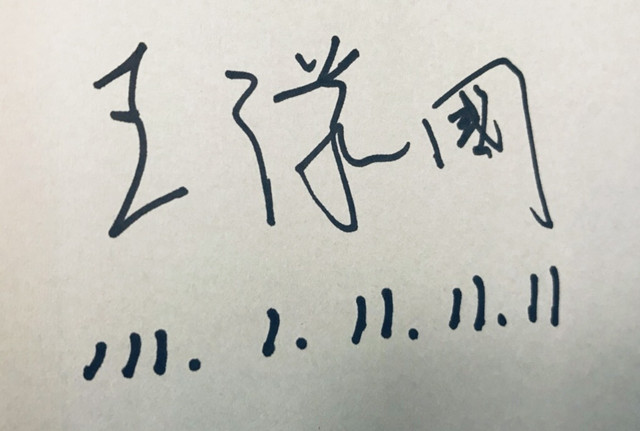 王 國
111.1.11.11.11